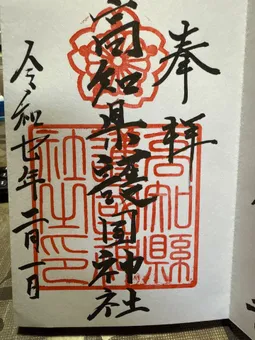 奉拝
高知県護国神社
令和七年二月一日
高知縣
護國神
社之印